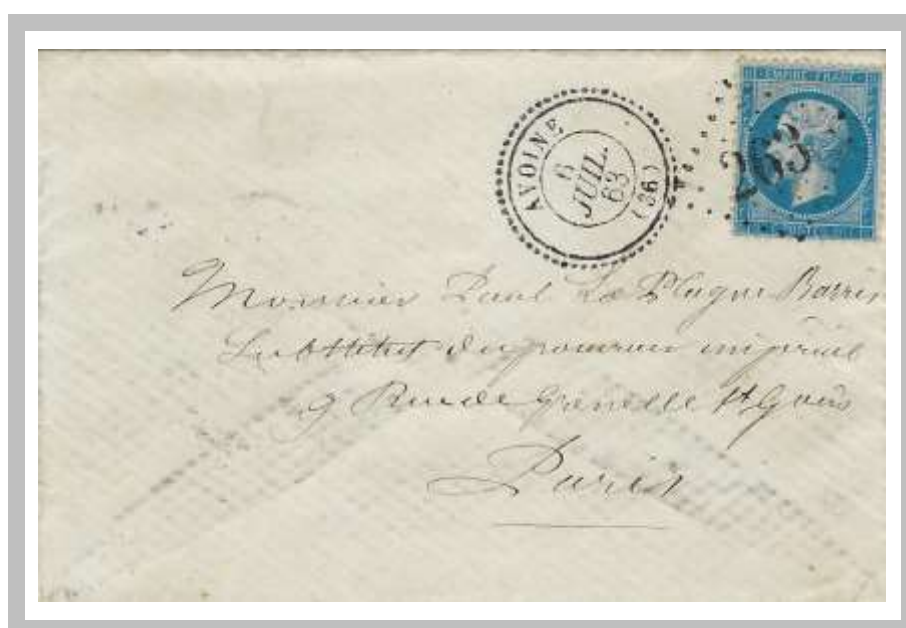 EMPIRE FRANC
263
AVOINE
6
JUIL.
63
(36)
Monsieur Paul La Plagne Barris
Substitut du procureur impérial
9 Rue de Grenelle St
Paris